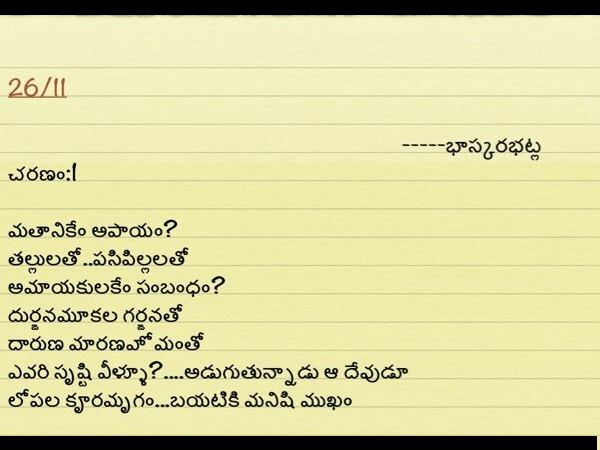 26/11
-----భాస్కరభట్ల
చరణం:1
మతానికేం అపాయం?
తల్లులతో..పసిపిల్లలతో
అమాయకులకేం సంబంధం?
దుర్జనమూకల గర్జనతో
దారుణ మారణహోమంతో
ఎవరి సృష్టి వీళ్ళూ?....అడుగుతున్నాడు ఆ దేవుడూ
లోపల కౄరమృగం...బయటికి మనిషి ముఖం